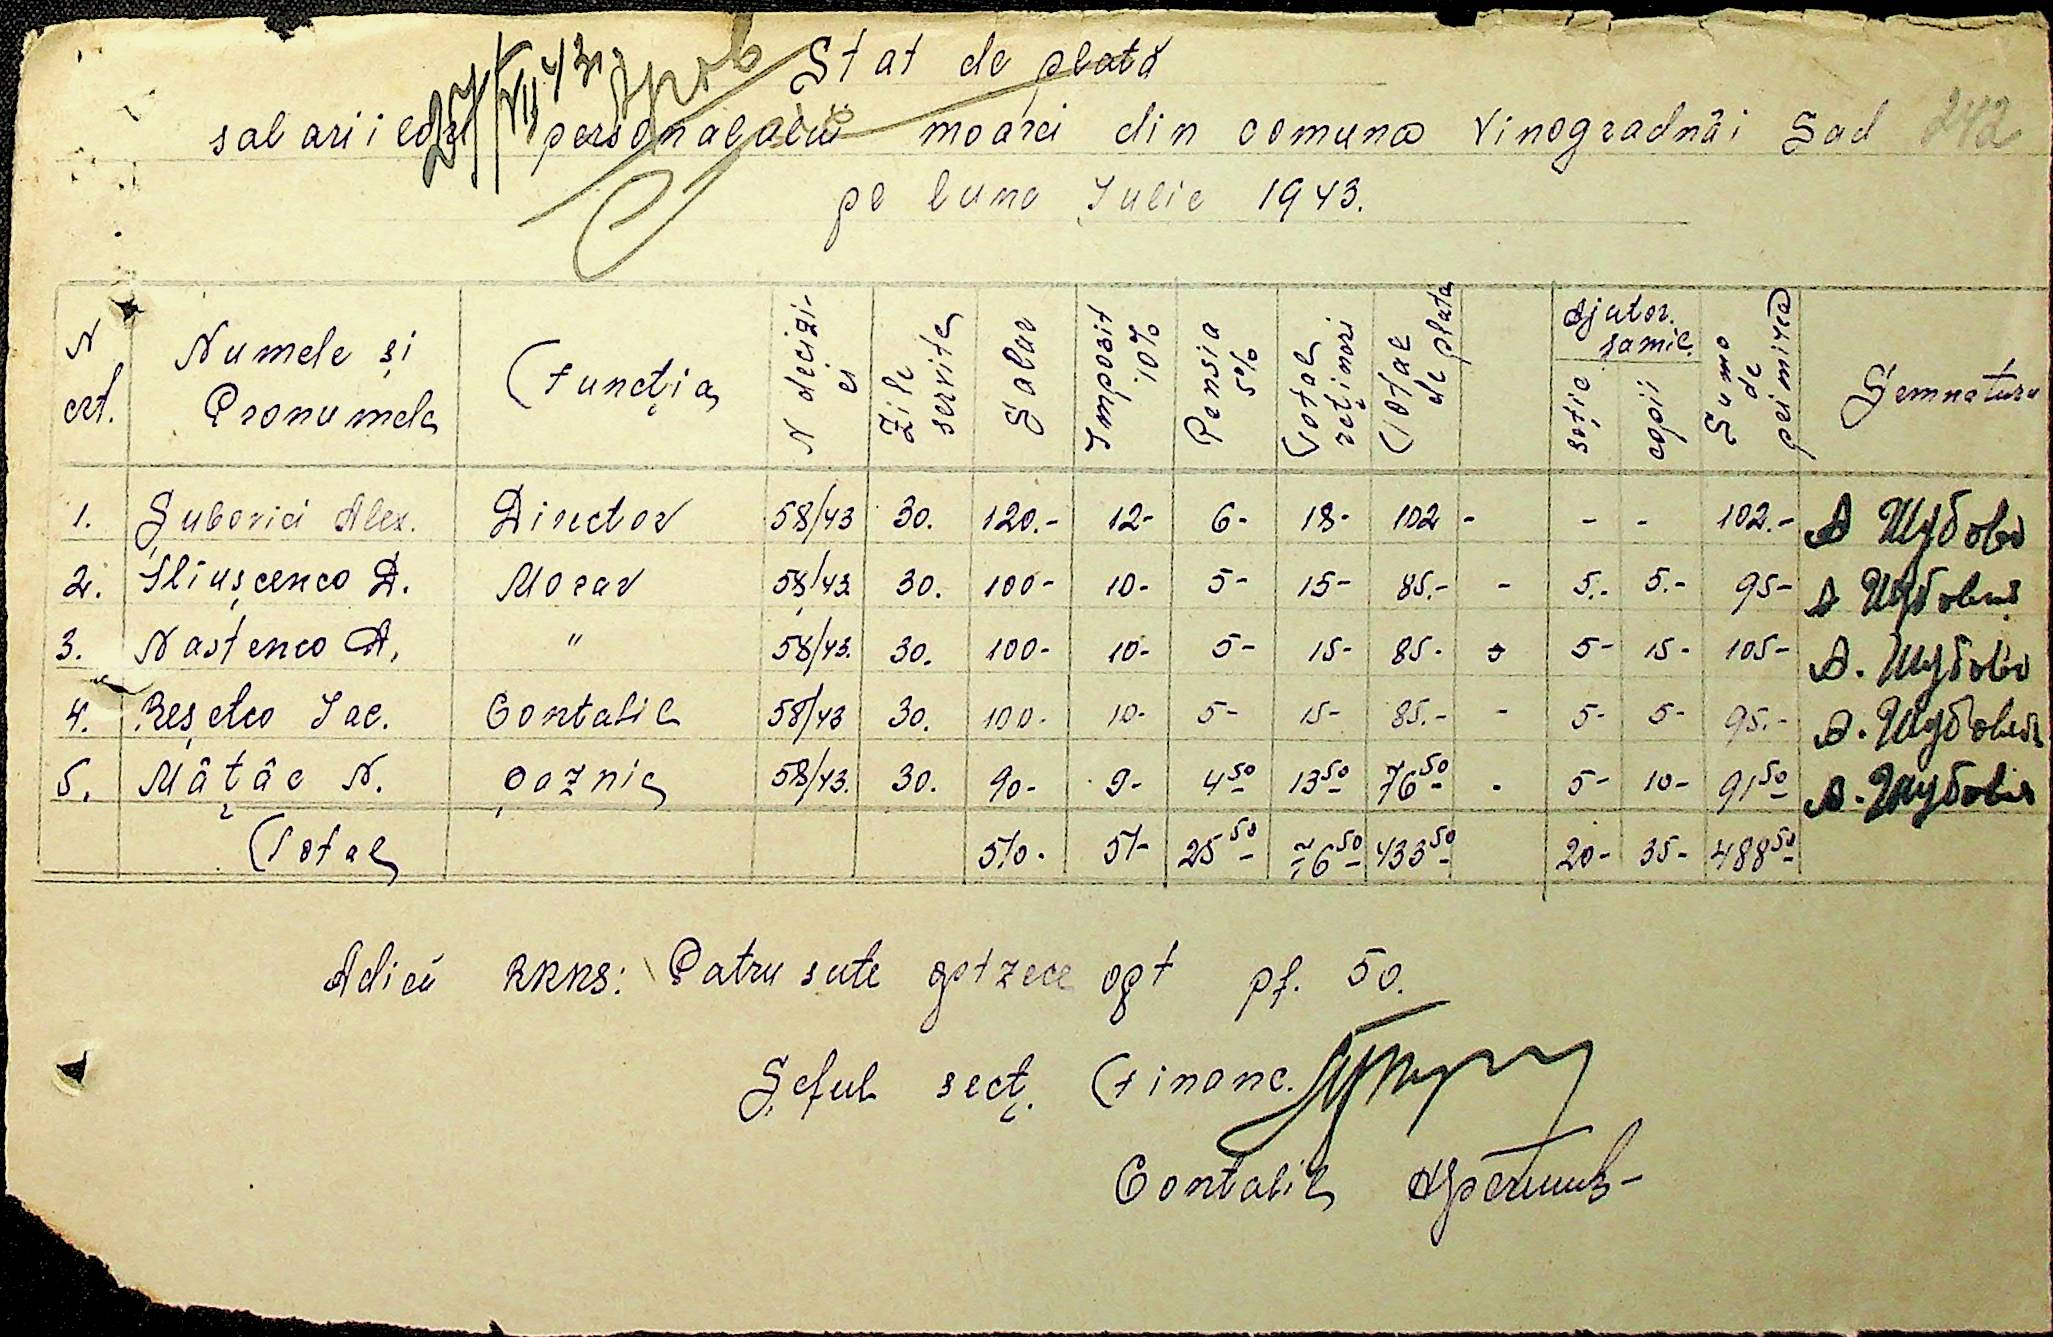 Stat de plată
27/VII 43 aprob
salariilor personalului moarei din comuna Vinogradnâi Sad 242
pe luna Iulie 1943.
N crt. Numele și Pronumele Funcția N decizi-ei Zile servite Salar Impozit 10% Pensia 5% Total rețineri Total de plata Ajutor. famil. soție copii Suma de primirea Semnatura
1. Șubovici Alex. Director 58/43 30. 120.- 12- 6- 18- 102 - - - 102.- А Шубович
2. Iliușcenco D. Morar 58/43 30. 100- 10- 5- 15- 85.- - 5.- 5.- 95- А Шубович
3. Nastenco A. " 58/43. 30. 100- 10- 5- 15- 85- - 5- 15- 105- А. Шубович
4. Reșetco Iac. Contabil 58/43 30. 100- 10- 5- 15- 85.- - 5- 5- 95.- А. Шубович
5. Mâțâc N. paznic 58/43. 30. 90- 9- 4 50 13 50 76 50 - 5- 10- 91 50 А. Шубович
Total 510- 51- 25 50 76 50 433 50 20- 35- 488 50
Adică RKKS: Patru sute optzece opt pf. 50.
Șeful secț. Financ.
Contabil